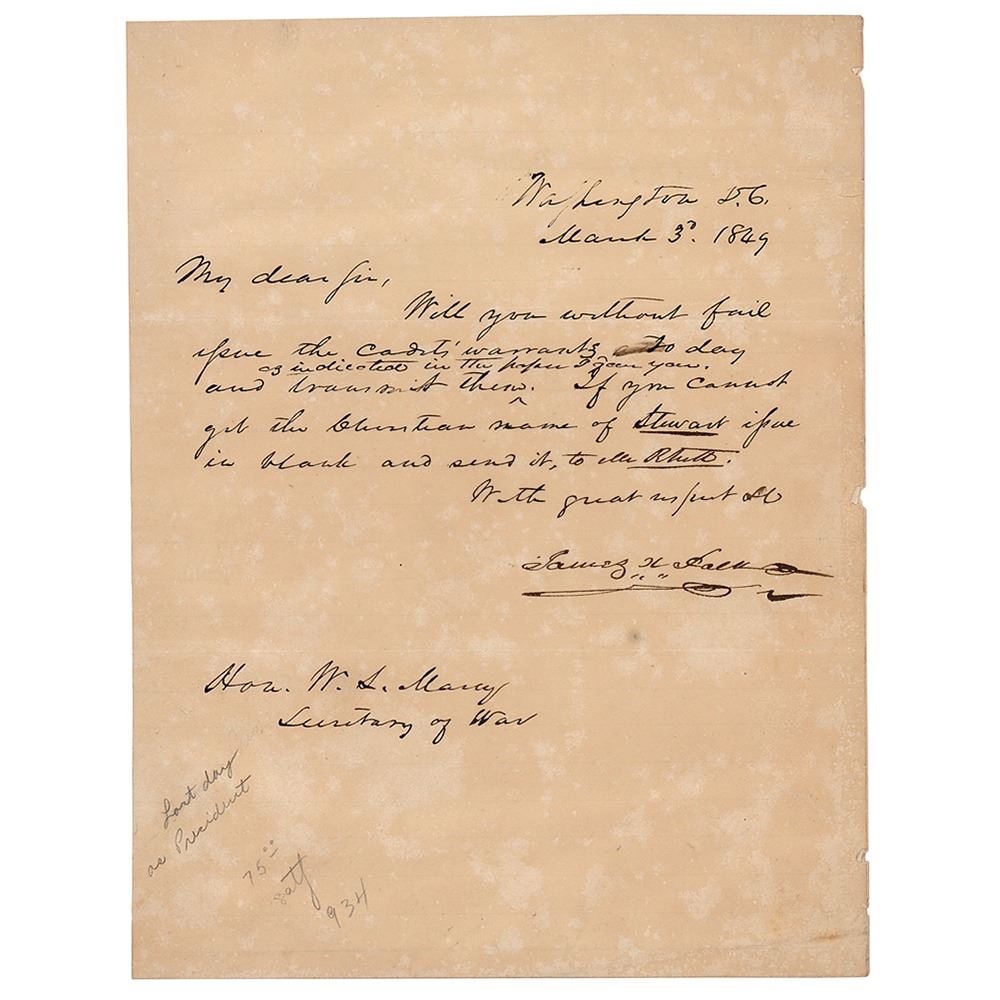 Washington D.C.
March 3d. 1849
My dear Sir,
Will you without fail
issue the cadets' warrants to day
as indicated in the paper I gave you.
and transmit them. If you cannot
get the Christian name of Stewart issue
in blank and send it, to Mr Rhett.
With great respect &c
James K Polk
Hon. W. L. Marcy
Secretary of War
Last day
as President
75
934